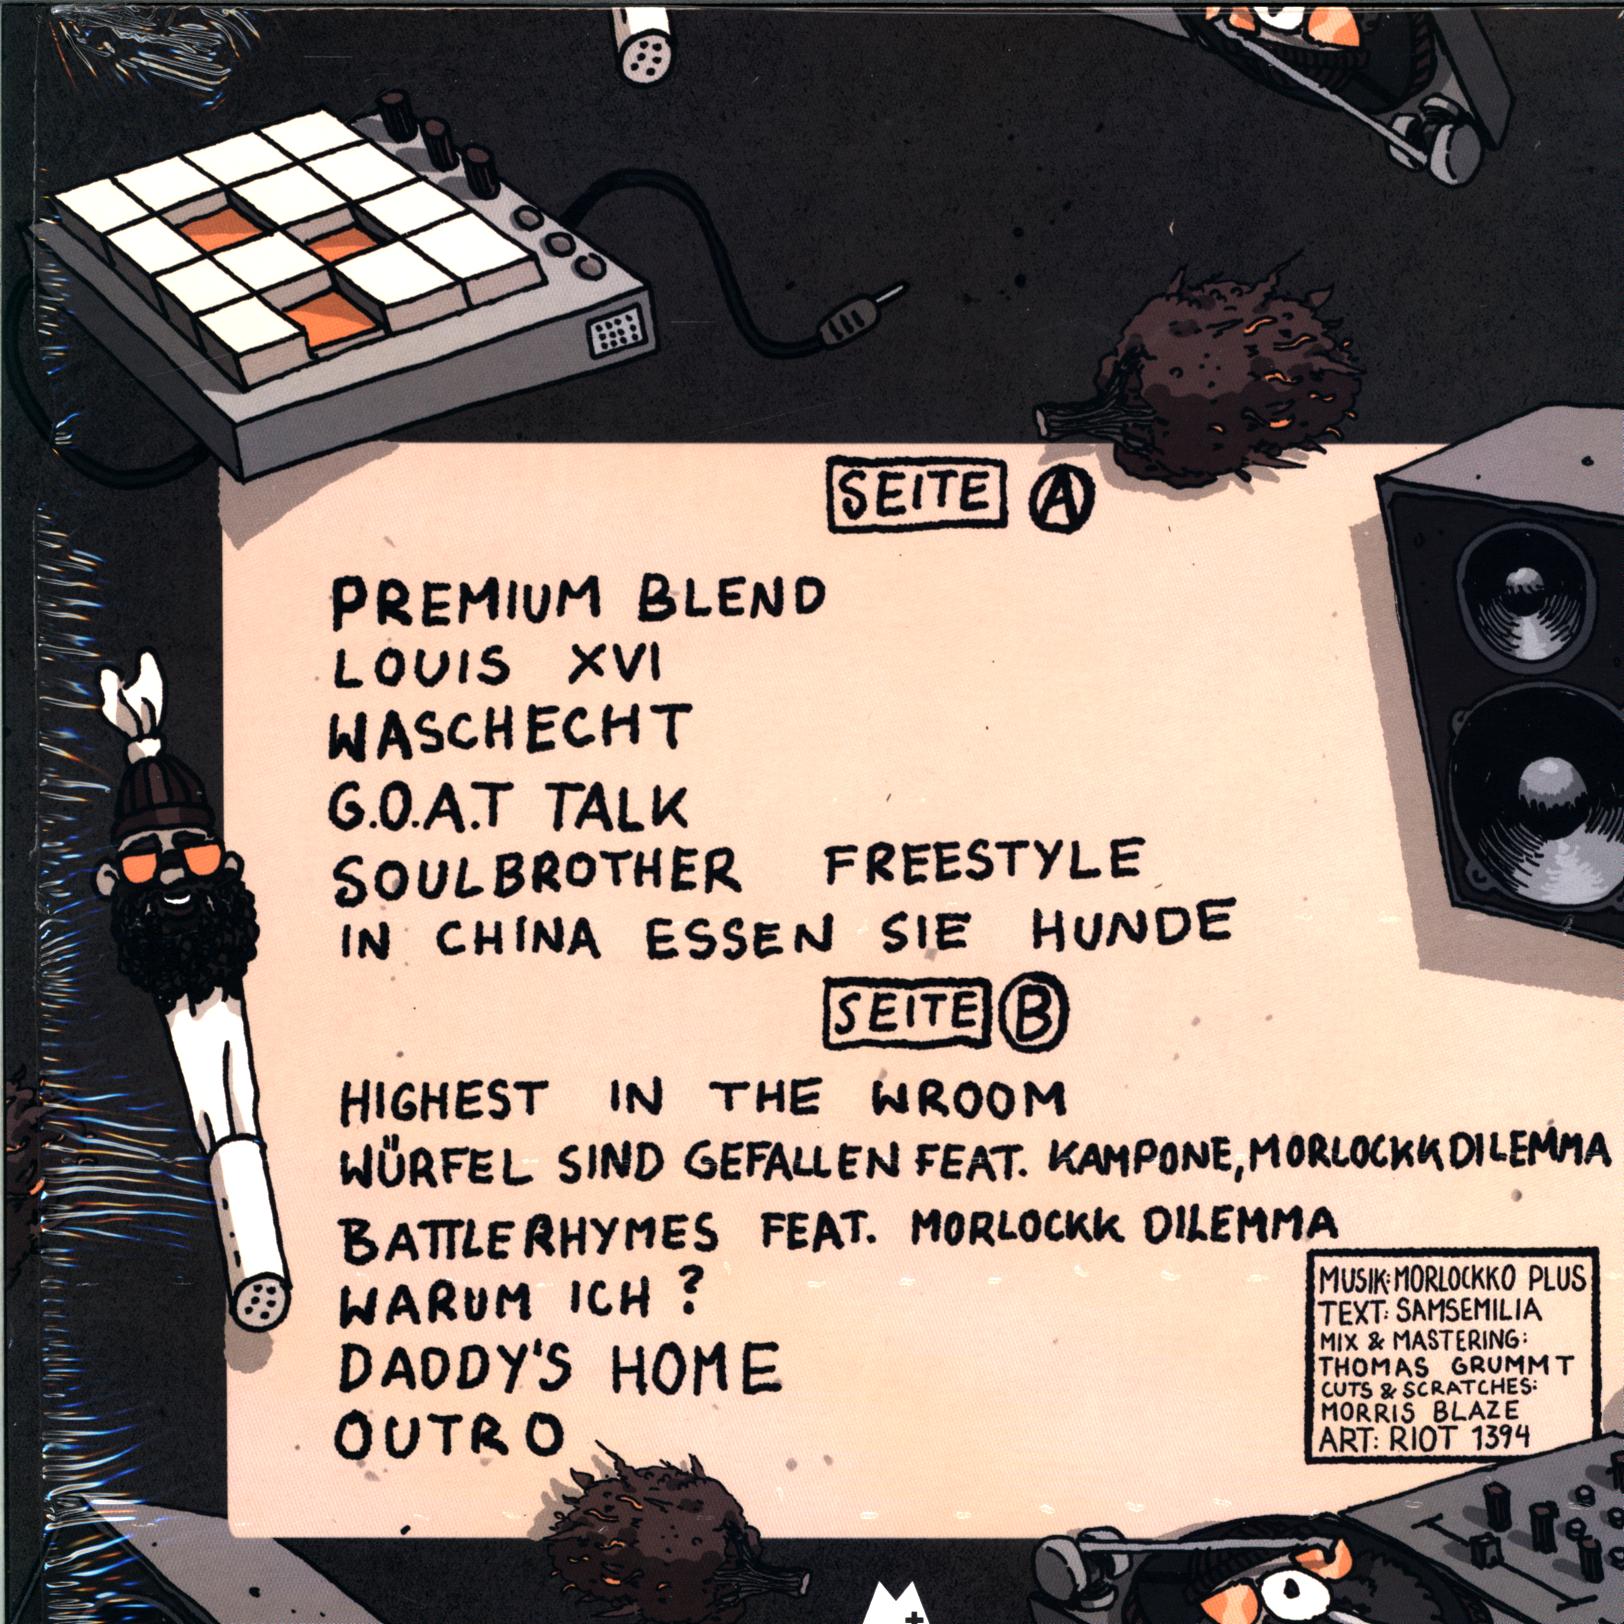 SEITE A
PREMIUM BLEND
LOUIS XVI
WASCHECHT
G.O.A.T TALK
SOULBROTHER FREESTYLE
IN CHINA ESSEN SIE HUNDE
SEITE B
HIGHEST IN THE WROOM
WÜRFEL SIND GEFALLEN FEAT. KAMPONE, MORLOCKK DILEMMA
BATTLERHYMES FEAT. MORLOCKK DILEMMA
WARUM ICH ?
DADDY'S HOME
OUTRO
MUSIK: MORLOCKKO PLUS
TEXT: SAMSEMILIA
MIX & MASTERING:
THOMAS GRUMMT
CUTS & SCRATCHES:
MORRIS BLAZE
ART: RIOT 1394